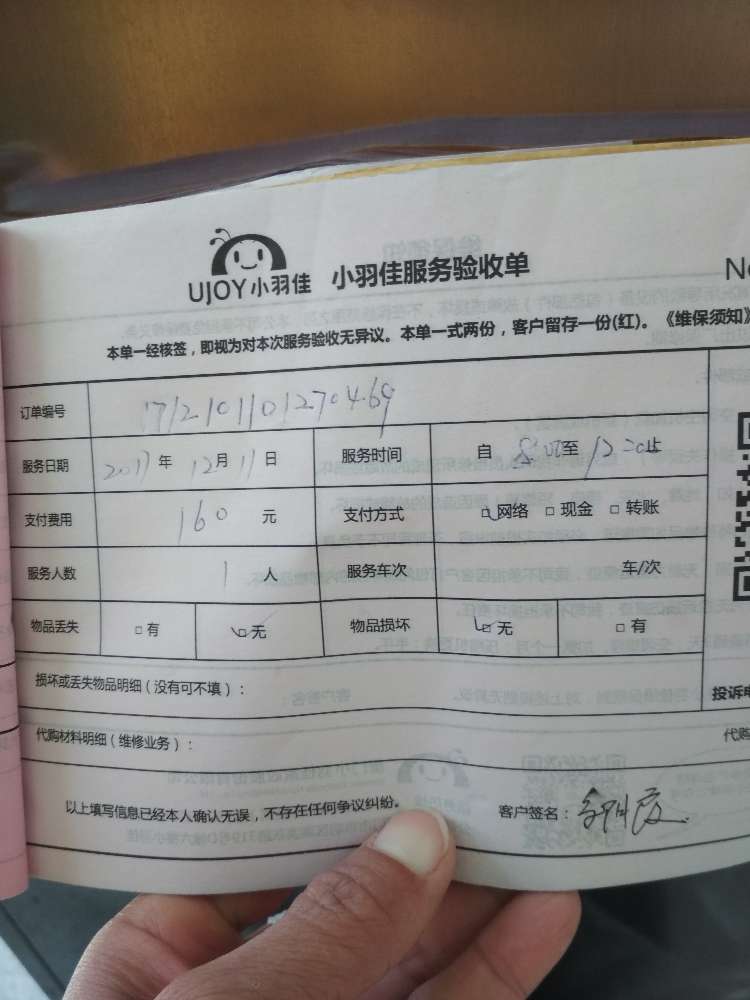 UJOY小羽佳 小羽佳服务验收单 No
本单一经核签，即视为对本次服务验收无异议。本单一式两份，客户留存一份(红)。《维保须知》
订单编号 1712101101270469
服务日期 2017年 12月 11日 服务时间 自 8:00至 12:00
支付费用 160 元 支付方式 网络 □现金 □转账
服务人数 1 人 服务车次 车/次
物品丢失 □有 无 物品损坏 无 □有
损坏或丢失物品明细（没有可不填）：
投诉电
代购材料明细（维修业务）： 代购
以上填写信息已经本人确认无误，不存在任何争议纠纷。 客户签名：